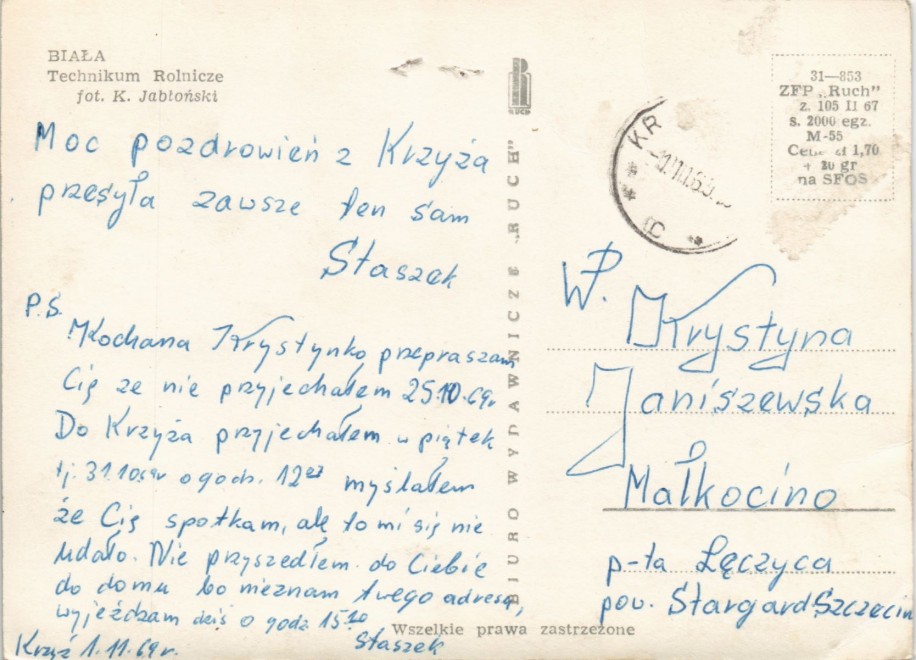 BIAŁA
Technikum Rolnicze
fot. K. Jabłoński
Moc pozdrowień z Krzyża
przesyła zawsze ten sam
Staszek
P.S.
Kochana Krystynko przepraszam
Cię że nie przyjechałem 25.10.69r
Do Krzyża przyjechałem w piątek
tj. 31.10.69r o godz. 12
myślałem
że Cię spotkam, ale to mi się nie
udało. Nie przyszedłem do Ciebie
do domu bo nieznam twego adresu,
wyjeżdżam dziś o godz 15
Krzyż 1.11.69r.
Staszek
BIURO WYDAWNICZE „RUCH”
Wszelkie prawa zastrzeżone
KR
31—853
ZFP „Ruch”
z. 105 II 67
s. 2000 egz.
M-55
Cena zł 1,70
+ 20 gr
na SFOS
WP.
Krystyna
Janiszewska
Małkocino
p-ta Łęczyca
pow. Stargard Szczecin